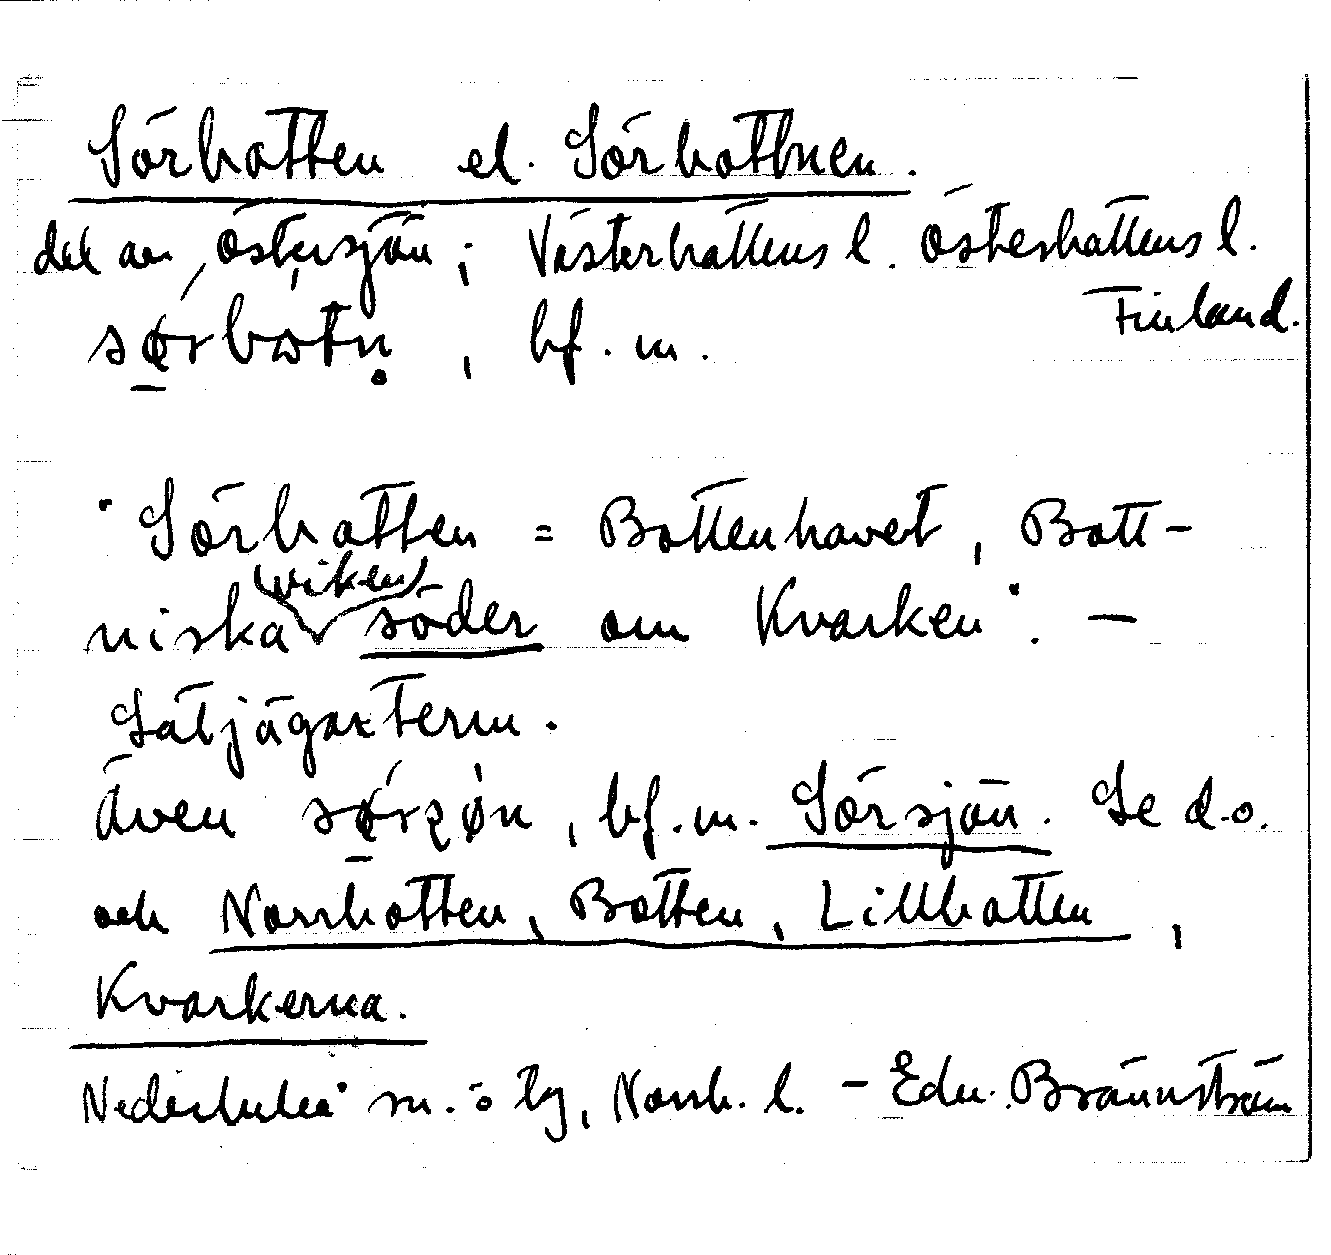 Sörbotten el. Sörbottnen.
del av Östersjön; Västerbottens l. Österbottens l.
Finland.
sørbotn̥, bf. m.
"Sörbotten = Bottenhavet, Bott-
niska viken söder om Kvarken". —
Säljägarterm.
Även bf. m. Sörsjön. Se d.o.
och Norrbotten, Botten, Lillbotten,
Kvarkerna.
Nederluleå sn. o tg, Norrb. l. - Edv. Brännström